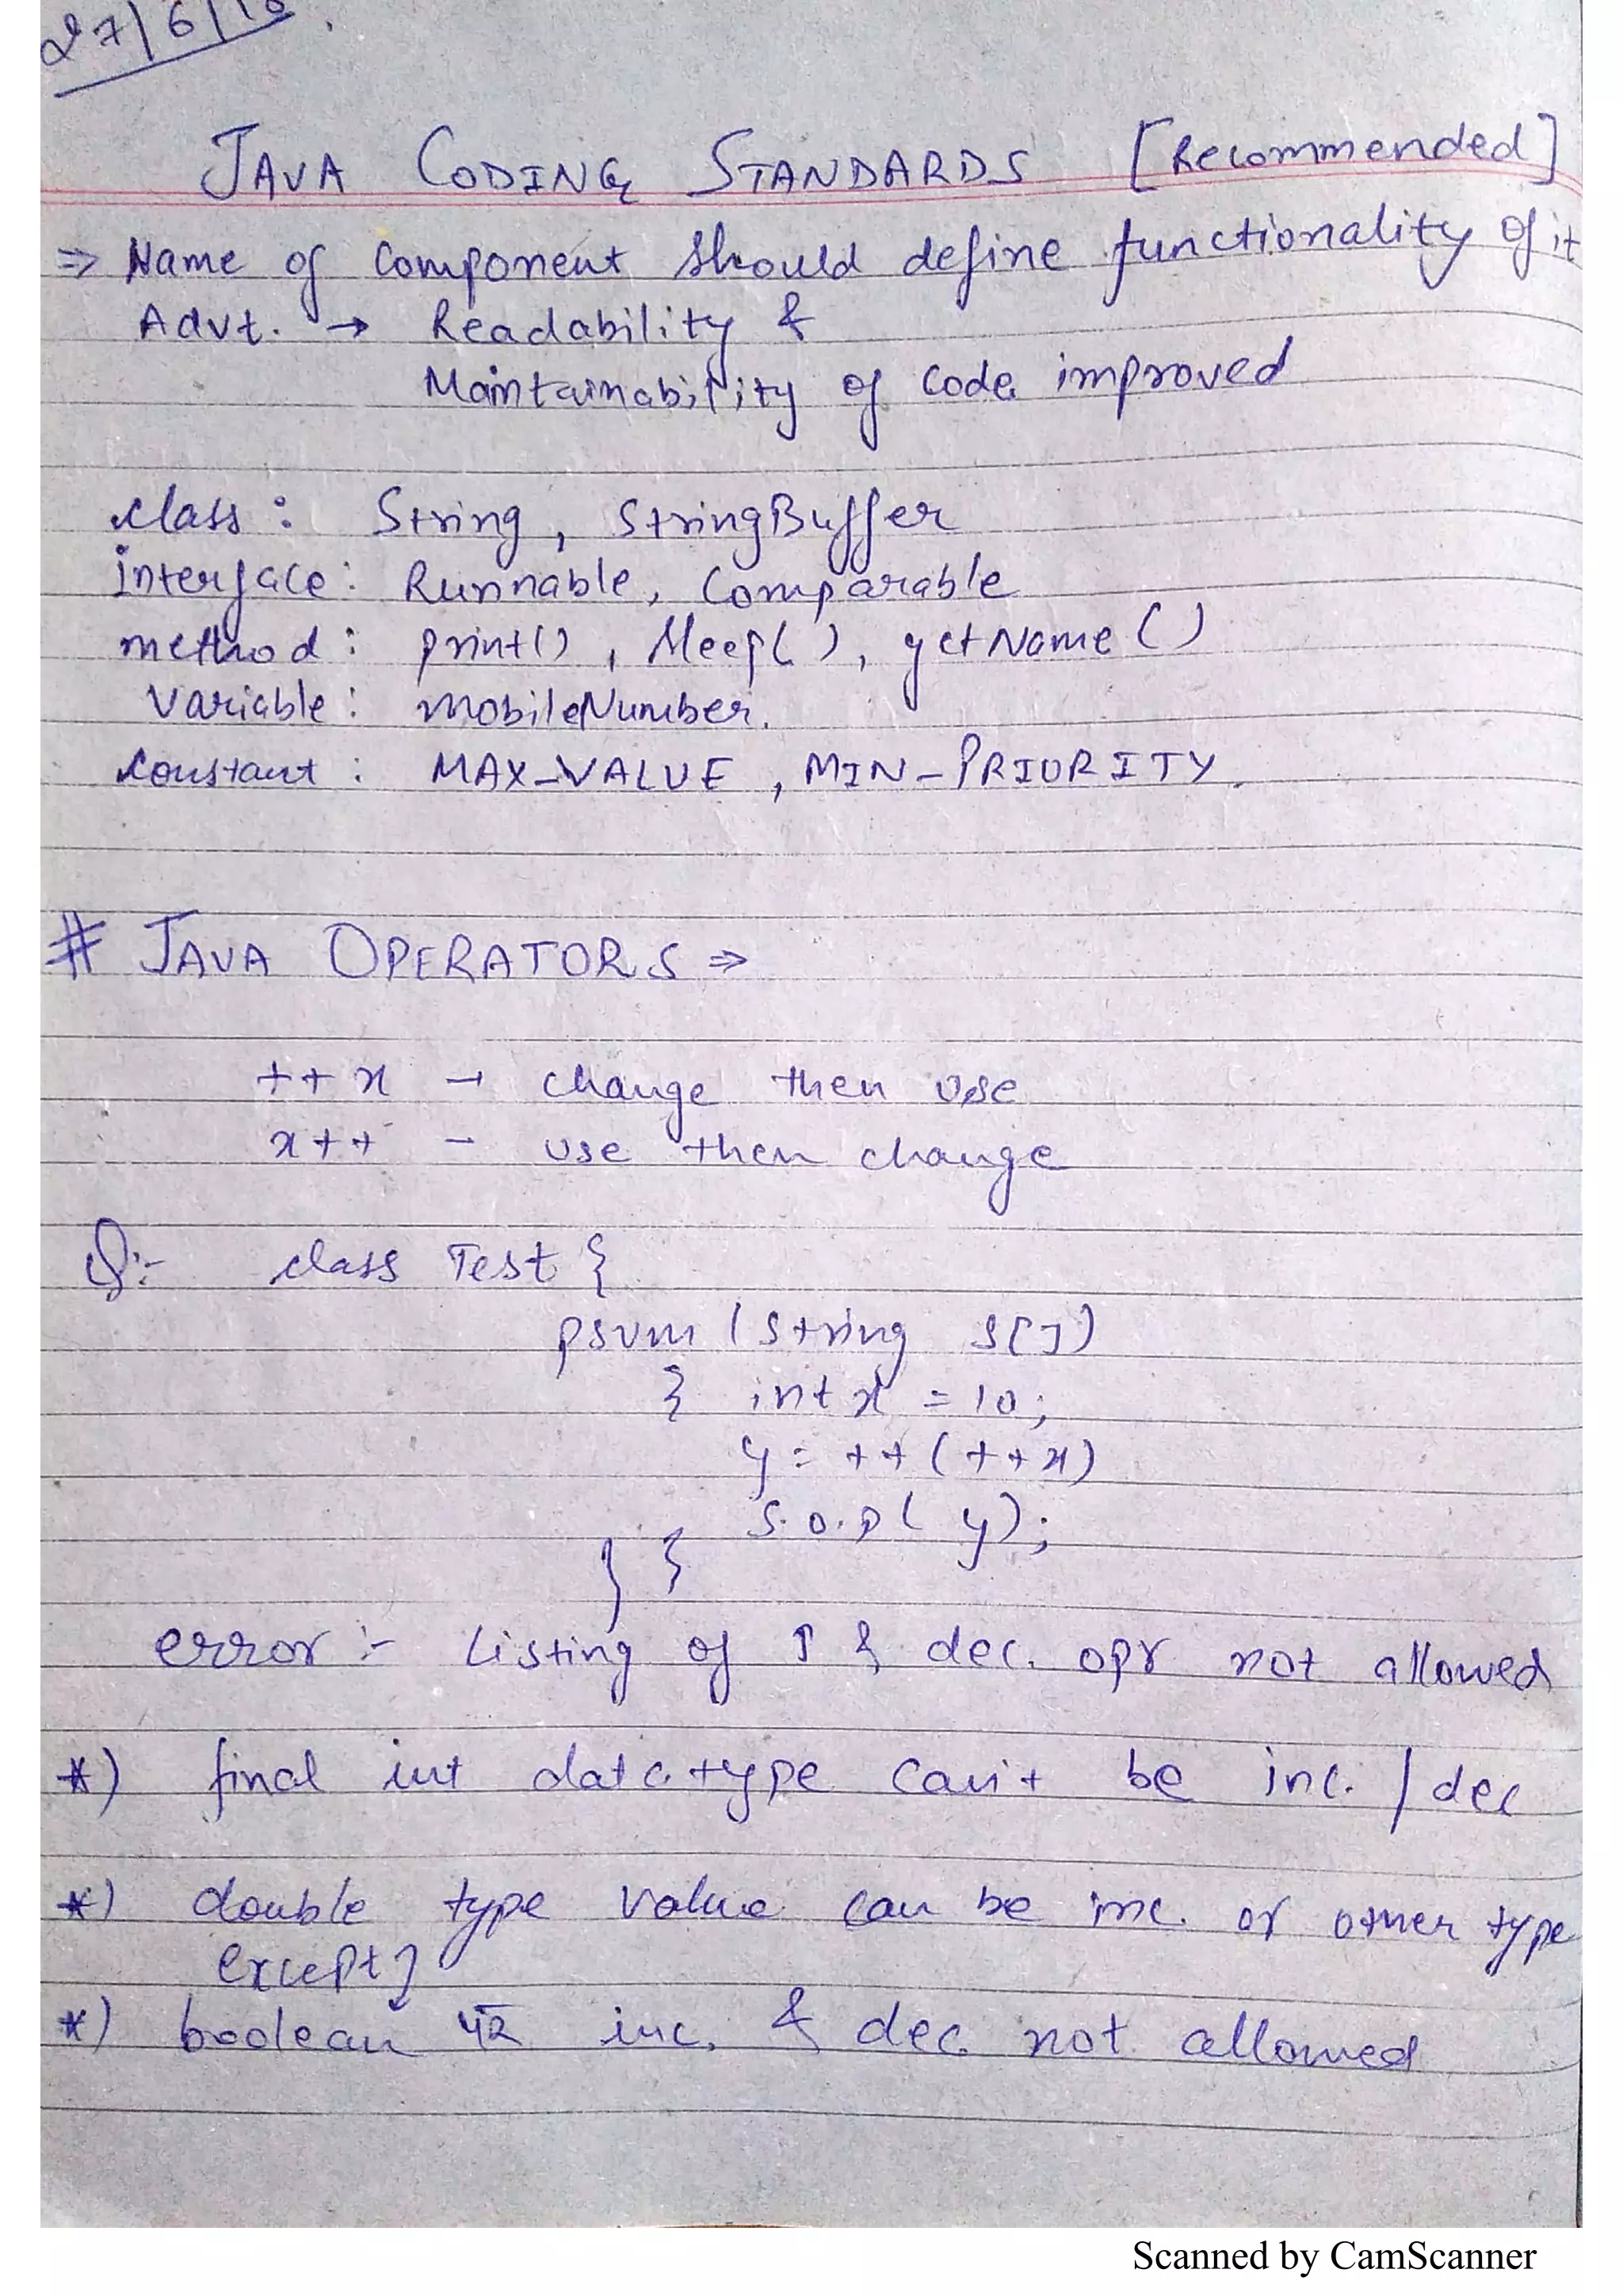 27/6/18
JAVA CODING STANDARDS [Recommended]
⇒ Name of Component Should define functionality of it
Advt. → Readability &
Maintainability of Code improved
class : String, StringBuffer
interface : Runnable, Comparable
method : print(), Sleep( ), getName ( )
Variable : mobileNumber.
Constant : MAX_VALUE , MIN_PRIORITY.
# JAVA OPERATORS ⇒
++x → change then use
x++ – use then change
Q:- class Test {
psvm (String s[])
{ int x = 10;
y = ++(++x)
S.o.p( y);
} }
error :- Listing of ↑ & dec. opr not allowed
*) final int data type can't be inc. / dec
*) double type value can be inc. or other type
except
*) boolean inc. & dec not allowed
Scanned by CamScanner